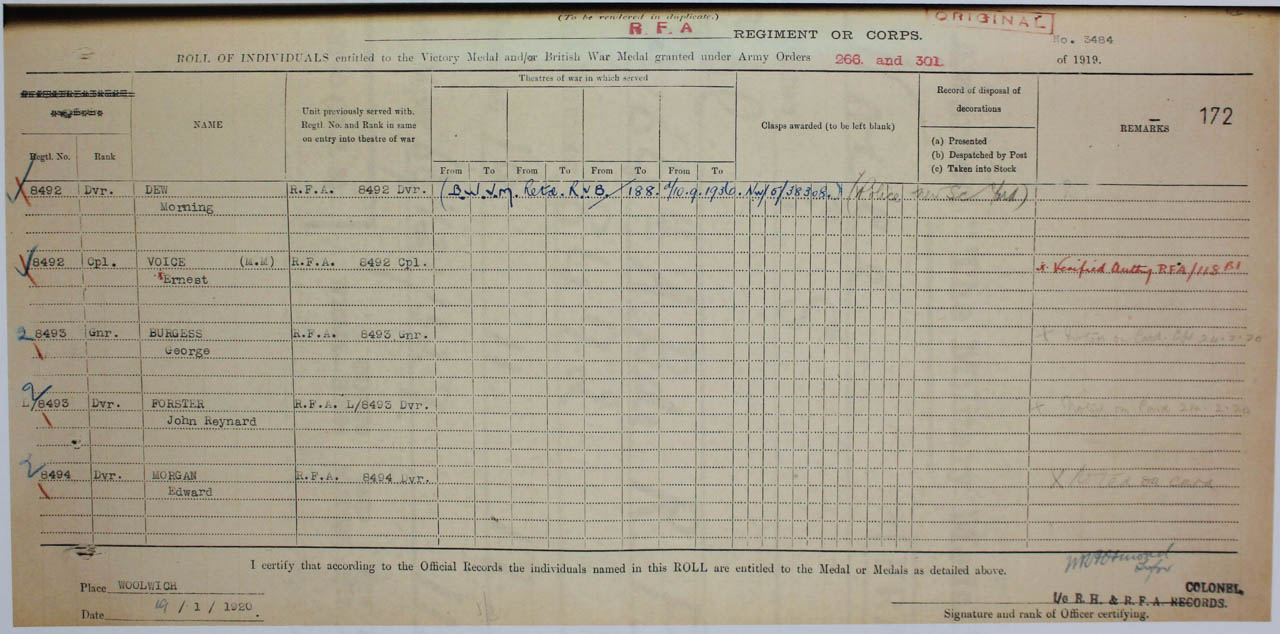 (To be rendered in duplicate.)
ORIGINAL
R.F.A REGIMENT OR CORPS.
No. 3484
ROLL OF INDIVIDUALS entitled to the Victory Medal and/or British War Medal granted under Army Orders 266. and 301. of 1919.
Theatres of war in which served
Regtl. No.
Rank
NAME
Unit previously served with.
Regtl. No. and Rank in same
on entry into theatre of war
From To From To From To From To
Clasps awarded (to be left blank)
Record of disposal of
decorations
(a) Presented
(b) Despatched by Post
(c) Taken into Stock
REMARKS
172
8492 Dvr. DEW R.F.A. 8492 Dvr. (B.W.V.M. Retd. R.V.B. 188. 10.9.1930. NW/5/38308.)
Morning
8492 Cpl. VOICE (M.M) R.F.A. 8492 Cpl. x Verified Authy RFA/118 B1
x Ernest
2 8493 Gnr. BURGESS R.F.A. 8493 Gnr. x Card 24.2.20
George
2
L/8493 Dvr. FORSTER R.F.A. L/8493 Dvr. x Card 24.2.20
John Reynard
2 8494 Dvr. MORGAN R.F.A. 8494 Dvr. X Noted on card
Edward
I certify that according to the Official Records the individuals named in this ROLL are entitled to the Medal or Medals as detailed above.
Place WOOLWICH
Date 19 / 1 / 1920.
COLONEL,
I/c R.H. & R.F.A. RECORDS.
Signature and rank of Officer certifying.